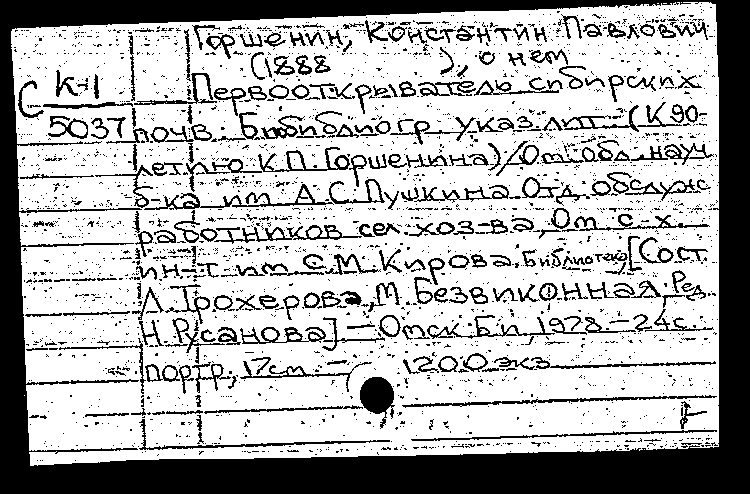 Горшенин, Константин Павлович
(1888 ), о нем
С К-1
5037
Первооткрыватель сибирских
почв: Библиогр. указ. лит. (К 90-
летию К.П. Горшенина)/Ом. обл. науч.
б-ка им. А.С. Пушкина. Отд. обслуж.
работников сел. хоз-ва, Ом. с.-х.
ин-т им. С.М. Кирова. Библиотека; [Сост.
Л. Трохерова, М. Безвиконная; Ред.
Н. Русанова]. — Омск: Б.и., 1978. — 24 с.
портр.; 17 см. — 1200 экз.